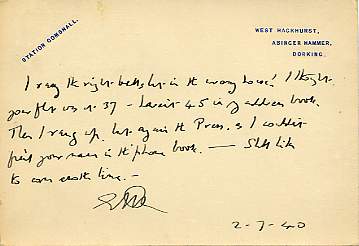 STATION GOMSHALL.
WEST HACKHURST,
ABINGER HAMMER,
DORKING.
I rang the right bell, but in the wrong house! I thought
your flat was at 37 - have it 45 in my address book.
Then I rang up, but again the Press, as I couldn't
find your name in the 'phone book. — Shd like
to come another time. -
2-7-40